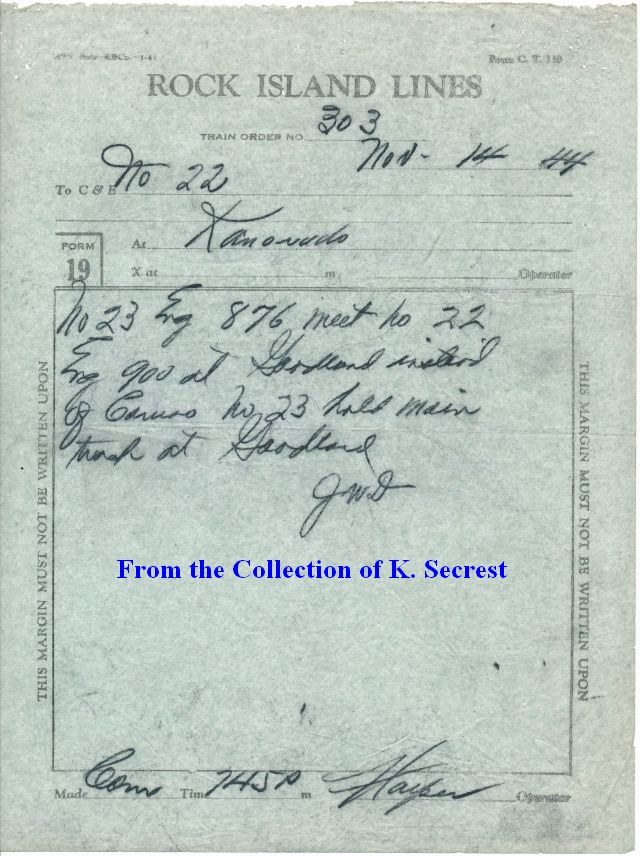 Form C. T. 110
ROCK ISLAND LINES
TRAIN ORDER NO. 303
Nov- 14 44
To C & E No 22
FORM 19
At Kanorado
X at m Operator
No 23 Eng 876 meet No 22
Eng 900 at Goodland instead
of Caruso No 23 hold main
track at Goodland
JWD
THIS MARGIN MUST NOT BE WRITTEN UPON
THIS MARGIN MUST NOT BE WRITTEN UPON
From the Collection of K. Secrest
Made Com Time 745 P m Harper Operator